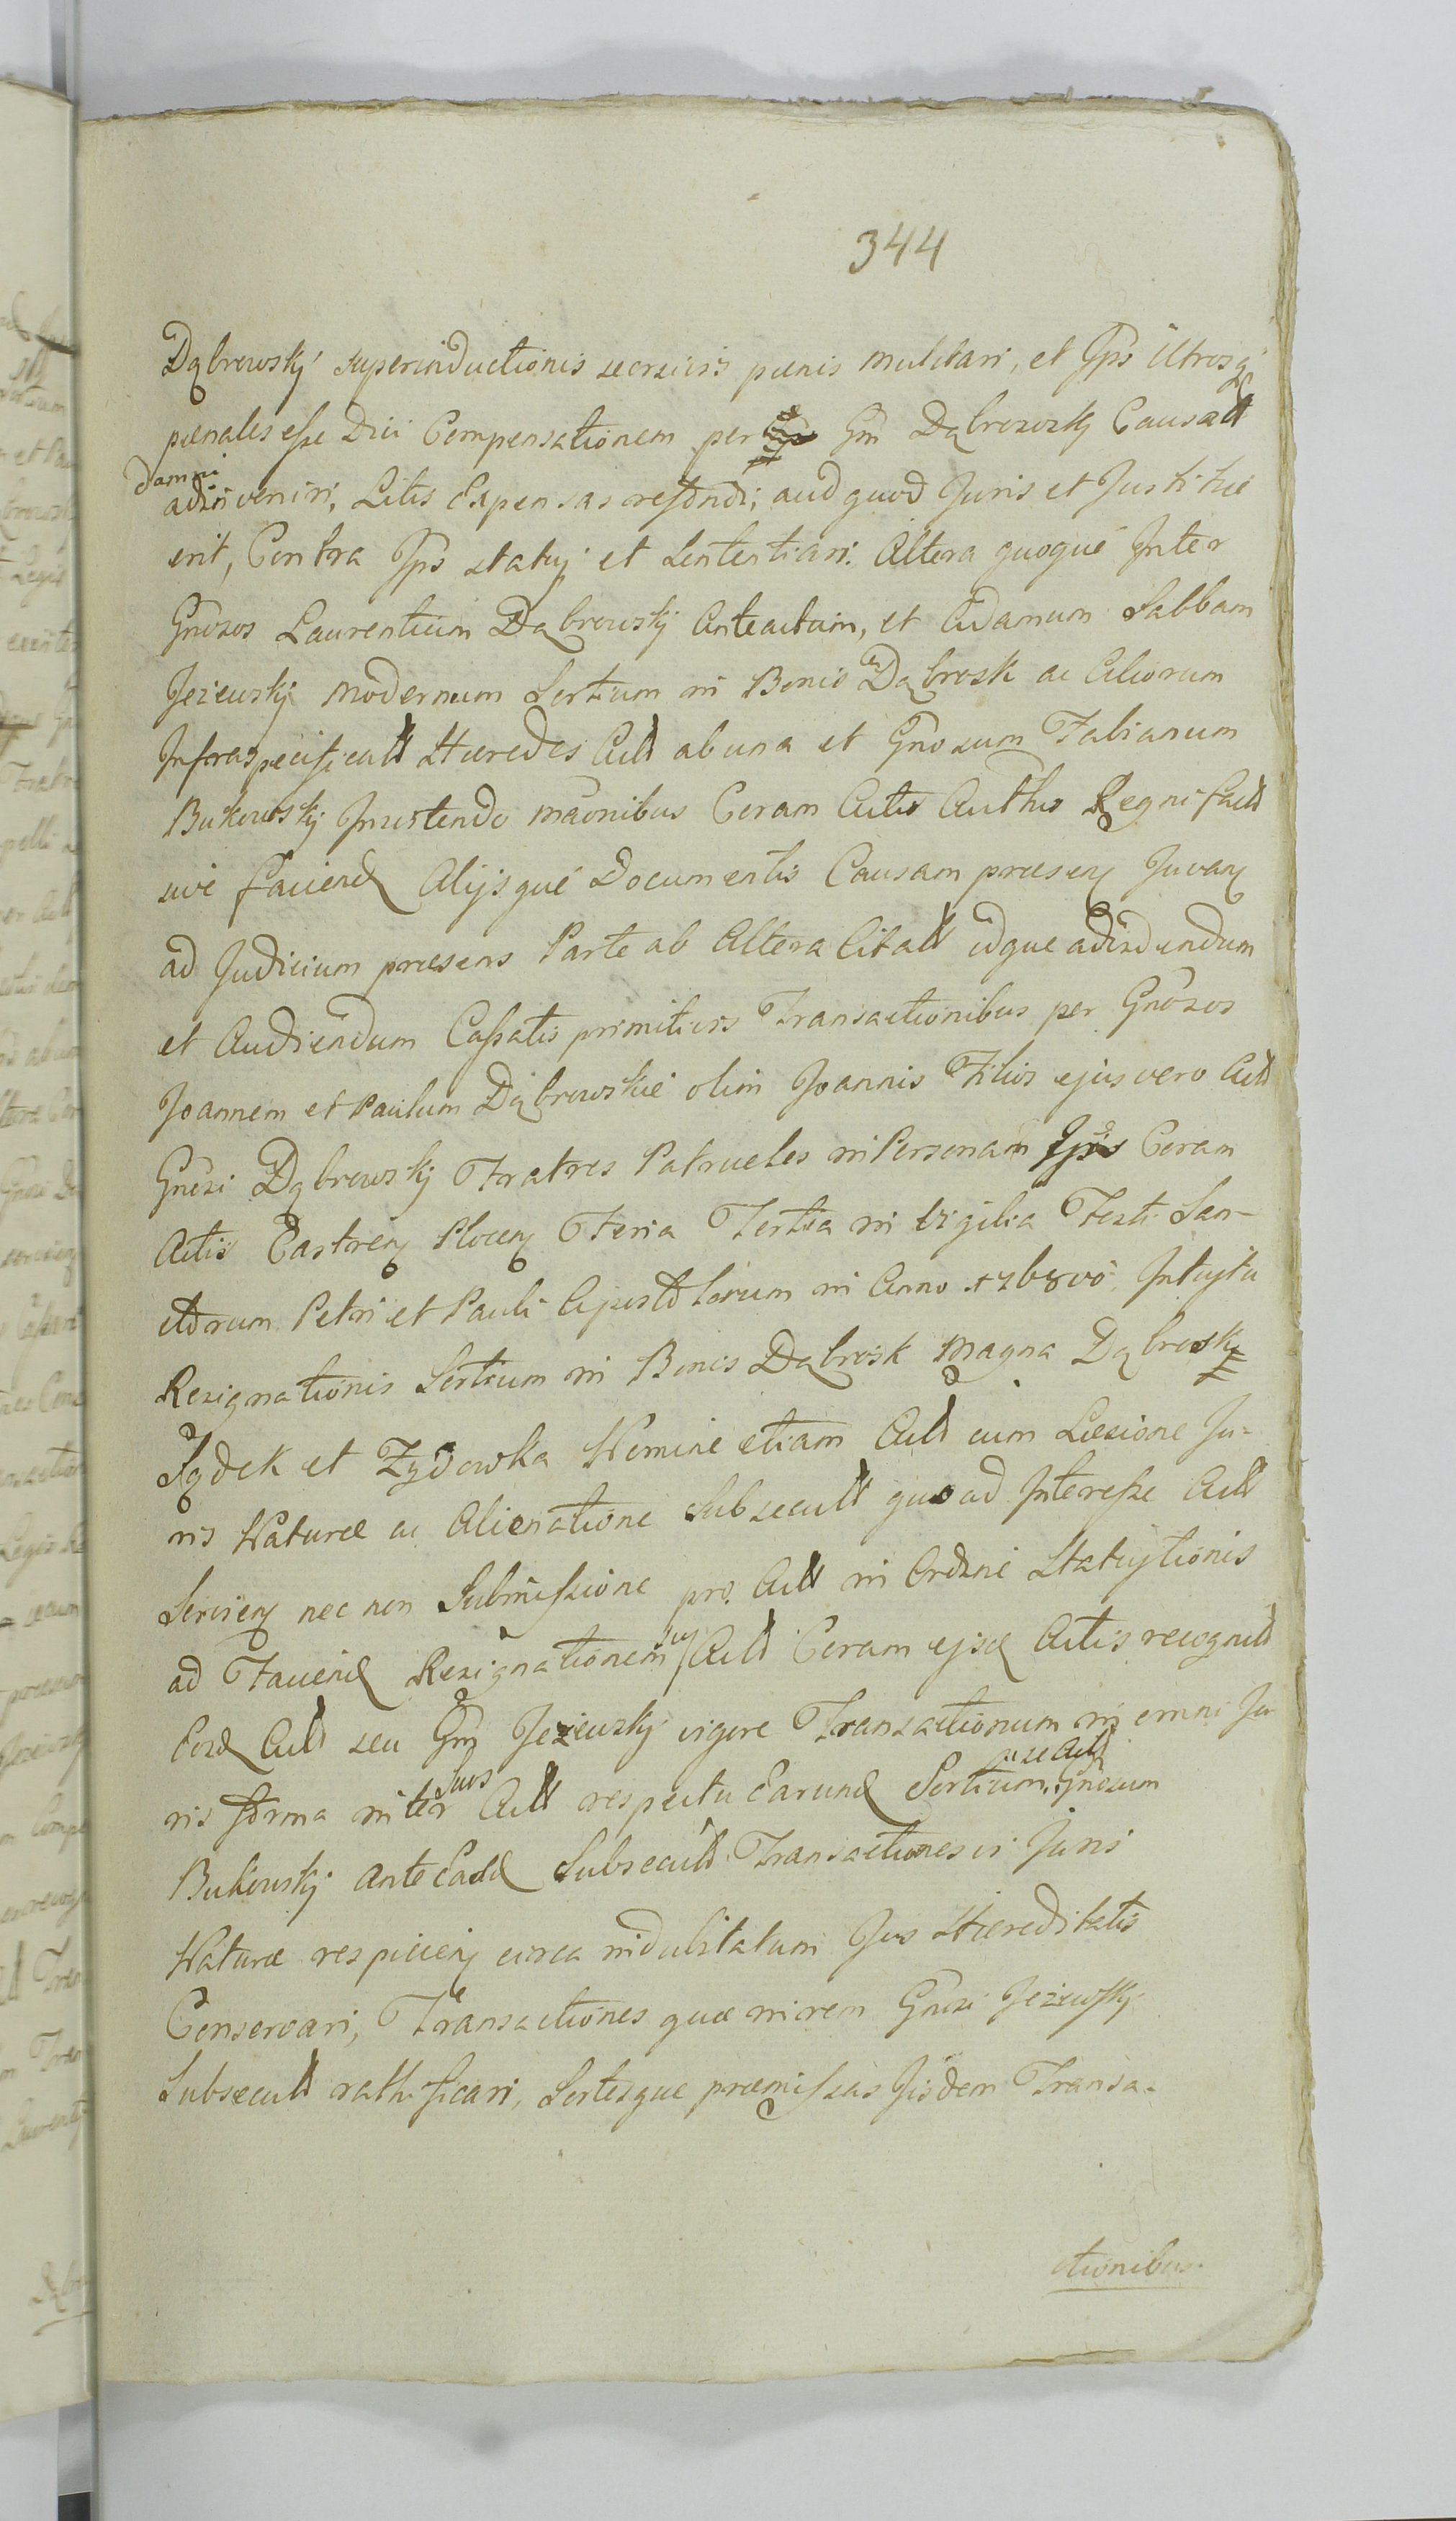 344
Dąbrowskÿ superinductionis
pænis mulctari, et Jps Utrosq
pænales eſse Dici Compensationem per Gm Dąbrowskÿ Causatt
damni
adinveniri, Litis Expensas refundi; aud quod Juris et Justitiæ
erit, Contra Jps statuj et Sententiari. Altera quoque Inter
Gnosos Laurentium Dąbrowskÿ Anteactum, et Adamum Sabbam
Jezewskÿ Modernum Sortium in Bonis Dąbrosk ac Aliorum
Infraspecificatt Hæredes Actt ab una et Gnosum Fabianum
Bukowskÿ Insistendo Mãonibus Coram Actis Authis Regni fact
sive faciend Alijsque Documentis Causam præsen Juvan
ad Judicium præsens Parte ab Altera Citatt idque
et Audiendum Caſsatis primitivis Transactionibus per Gnosos
Joannem et Paulum Dąbrowskie olim Joannis Filios ejus vero Actt
Gnosi Dąbrowskÿ Fratres Patrueles in Personam Jpis Coram
Actis Castren Plocen Feria Tertia in Vigilia Festi San-
ctorum Petri et Pauli Apostolorum in Anno Intujtu
Resignationis Sortium in Bonis Dąbrosk Magna Dąbrosk
et Zydowka Nomine etiam Actt cum Læsione Ju-
ris Naturæ ac Alienatione Subsecutt quoad Intereſse Actt
Servien nec non Submiſsione pro Actt in Ordine Statujtionis
ad Faciend Resignationem suj Actt Coram ejsd Actis recognitt
Eosd Actt seu Gm Jezewskÿ vigore Transactionum in omni Ju
ris forma inter Suos Actt respectu Earund Sortium ac se Actt Gnosum
Bukowskÿ antecadd Subsecutt Transactiones vi Juris
Naturæ respicien circa indubitatum Jus Hæreditatis
Conservari, Transactiones quæ in rem Gnosi Jezewskÿ
Subsecutt rathificari, Sortesque præmiſsas Jisdem Transa-
ctionibus.